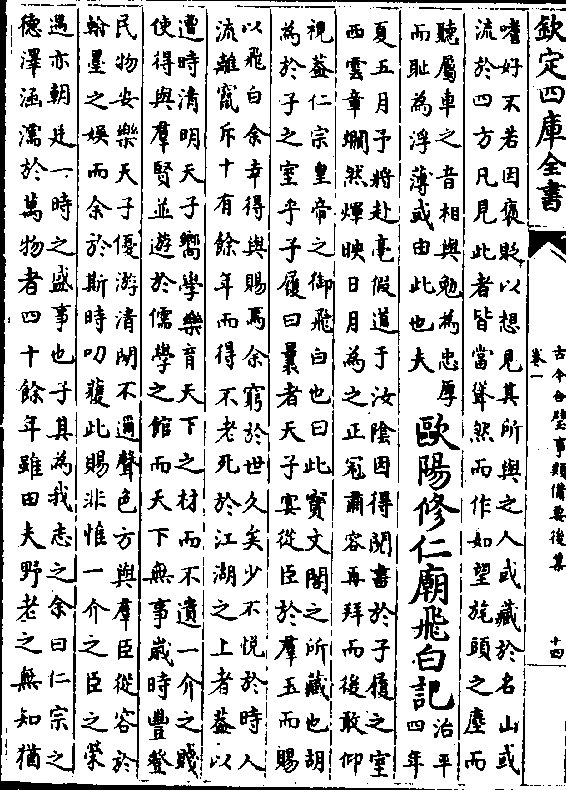 欽定四庫全書
卷一
古今合璧事類備要後集
十四
嗜好不若因褒貶以想見其所與之人或藏於名山或
流於四方凡見此者皆當聳然而作如望旄頭之塵而
聽屬車之音相與勉為忠厚
而恥為浮薄或由此也夫
歐陽修仁廟飛白記
治平
四年
夏五月予將赴亳假道于汝陰因得閱書於子履之室
西雲章爛然煇映日月為之正冠肅容再拜而後敢仰
視蓋仁宗皇帝之御飛白也曰此寶文閣之所藏也胡
為於子之室乎子履曰曩者天子宴從臣於羣玉而賜
以飛白余幸得與賜焉余窮於世久矣少不悅於時人
流離竄斥十有餘年而得不老死於江湖之上者蓋以
遭時清明天子嚮學樂育天下之材而不遺一介之賤
使得與羣賢並遊於儒學之館而天下無事歲時豐登
民物安樂天子優游清閒不邇聲色方與羣臣從容於
翰墨之娛而余於斯時叨獲此賜非惟一介之臣之榮
遇亦朝廷一時之盛事也子其為我志之余曰仁宗之
德澤涵濡於萬物者四十餘年雖田夫野老之無知猶